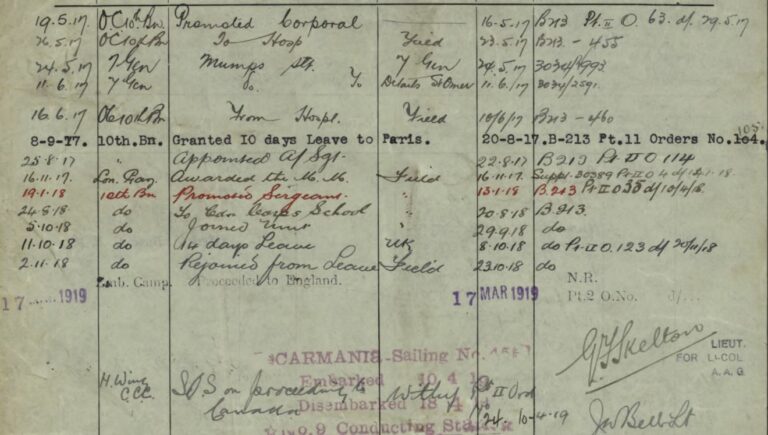 19.5.17 OC 10th Bn. Promoted Corporal 16.5.17 B213 Pt. II O. 63. d/. 29.5.17
26.5.17 OC 10th Bn To Hosp Field 23.5.17 B213 - 455
24.5.17 7 Gen Mumps 7 Gen 24.5.17 3034/4993
11.6.17 7 Gen Do. To Details St Omer 11.6.17 3034/2591.
16.6.17 OC 10th Bn From Hospl. Field 10/6/17 B213 - 460
8-9-17. 10th.Bn. Granted 10 days Leave to Paris. 20-8-17. B-213 Pt.11 Orders No. 104. 105
25.8.17 " Appointed A/Sgt. " 22.8.17 B213 Pt II O 114
16.11.17 Lon. Gaz. Awarded the M.M. Field 16.11.17. Suppl. 30389 Pt II O 4 d/ 12.1.18
19.1.18 10th Bn Promoted Sergeant " 13.1.18 B.213 Pt II O 35 d/ 10/4/18
24.8.18 do To Cdn Corps School " 20.8.18 B.213.
5.10.18 do Joined Unit " 29.9.18 do
11.10.18 do 14 days Leave UK 8.10.18 do Pt. II O. 123 d/ 20/11/18
2.11.18 do Rejoined from Leave Field 23.10.18 do
Emb. Camp. Proceeded to England. N.R.
17 1919 17 MAR 1919 Pt.2 O.No. d/...
G Skelton LIEUT.
FOR Lt-COL
A.A.G.
CARMANIA-Sailing No.
H. Wing SOS on proceeding to Pt II Ord
CCC. Canada
Embarked 10 4 19
Disembarked 18 4
No. 9 Conducting Staff
No 24. 10-4-19 Bell Lt